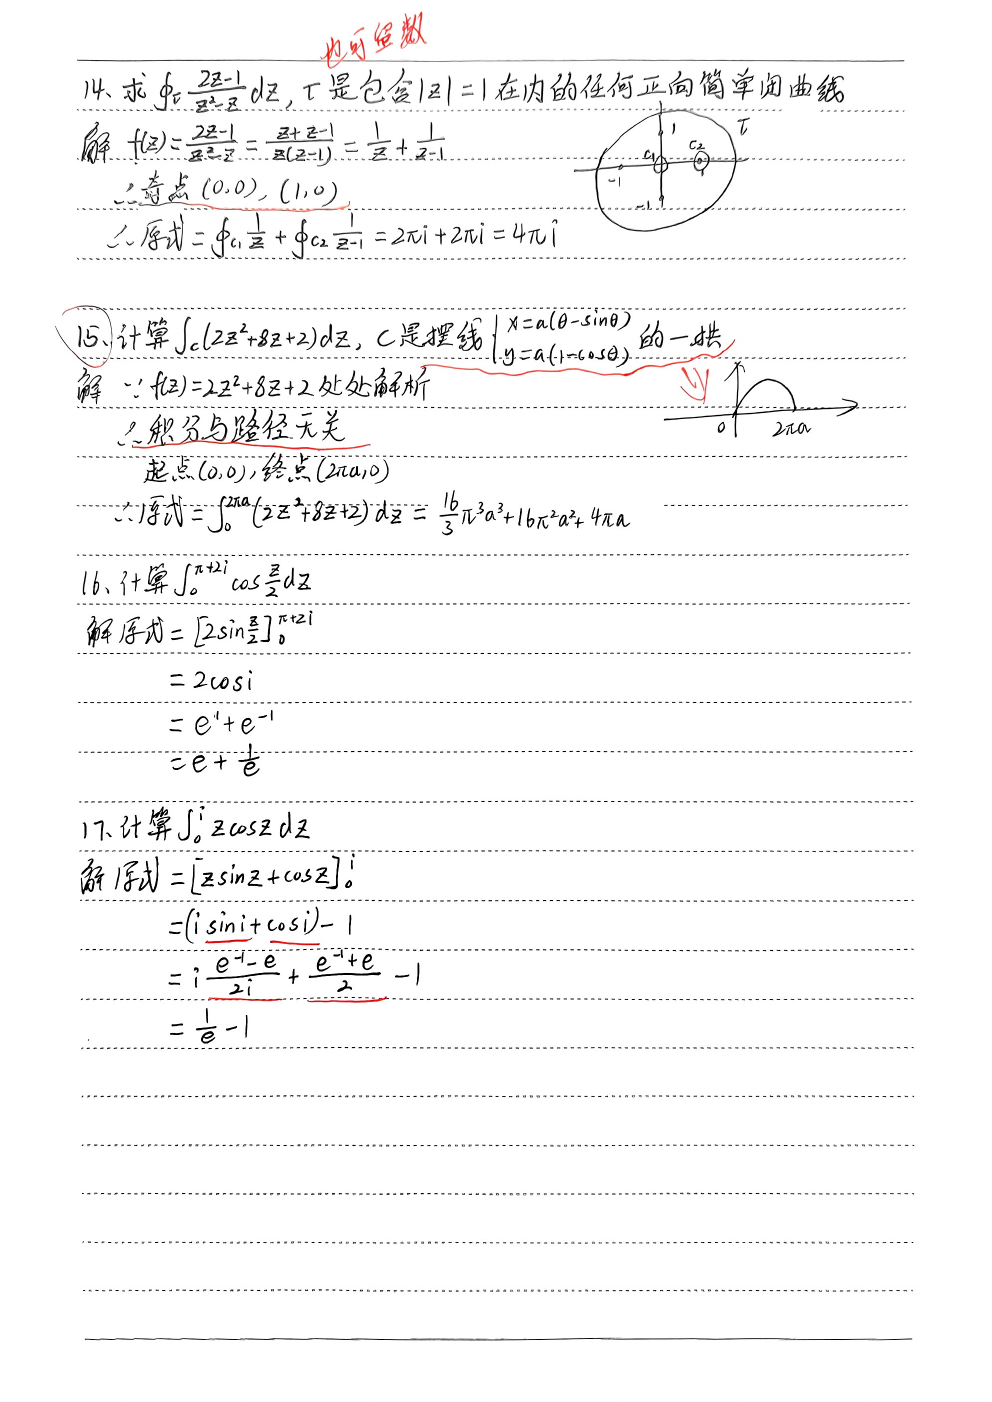 也可留数
14、求 ∮τ (2z-1)/(z²-z) dz, τ是包含|z|=1在内的任何正向简单闭曲线
解 f(z)=(2z-1)/(z²-z)=(z+z-1)/(z(z-1))=1/z+1/(z-1)
∴奇点(0,0), (1,0)
∴原式=∮c₁ 1/z + ∮c₂ 1/(z-1) =2πi+2πi=4πi
1 τ C₁ C₂ -1 1 -1
15、计算∫c(2z²+8z+2)dz, C是摆线{x=a(θ-sinθ) y=a(1-cosθ) 的一拱
解 ∵ f(z)=2z²+8z+2处处解析
∴积分与路径无关
0 2πa
起点(0,0), 终点(2πa,0)
∴原式=∫₀^{2πa}(2z²+8z+2)dz = 16/3 π³a³+16π²a²+4πa
16、计算∫₀^{π+2i} cos z/2 dz
解 原式=[2sin z/2]₀^{π+2i}
= 2cosi
= e¹+e⁻¹
= e+1/e
17、计算∫₀^i zcosz dz
解 原式=[zsinz+cosz]₀^i
=(i sini+cosi)-1
= i (e⁻¹-e)/2i + (e⁻¹+e)/2 -1
= 1/e -1